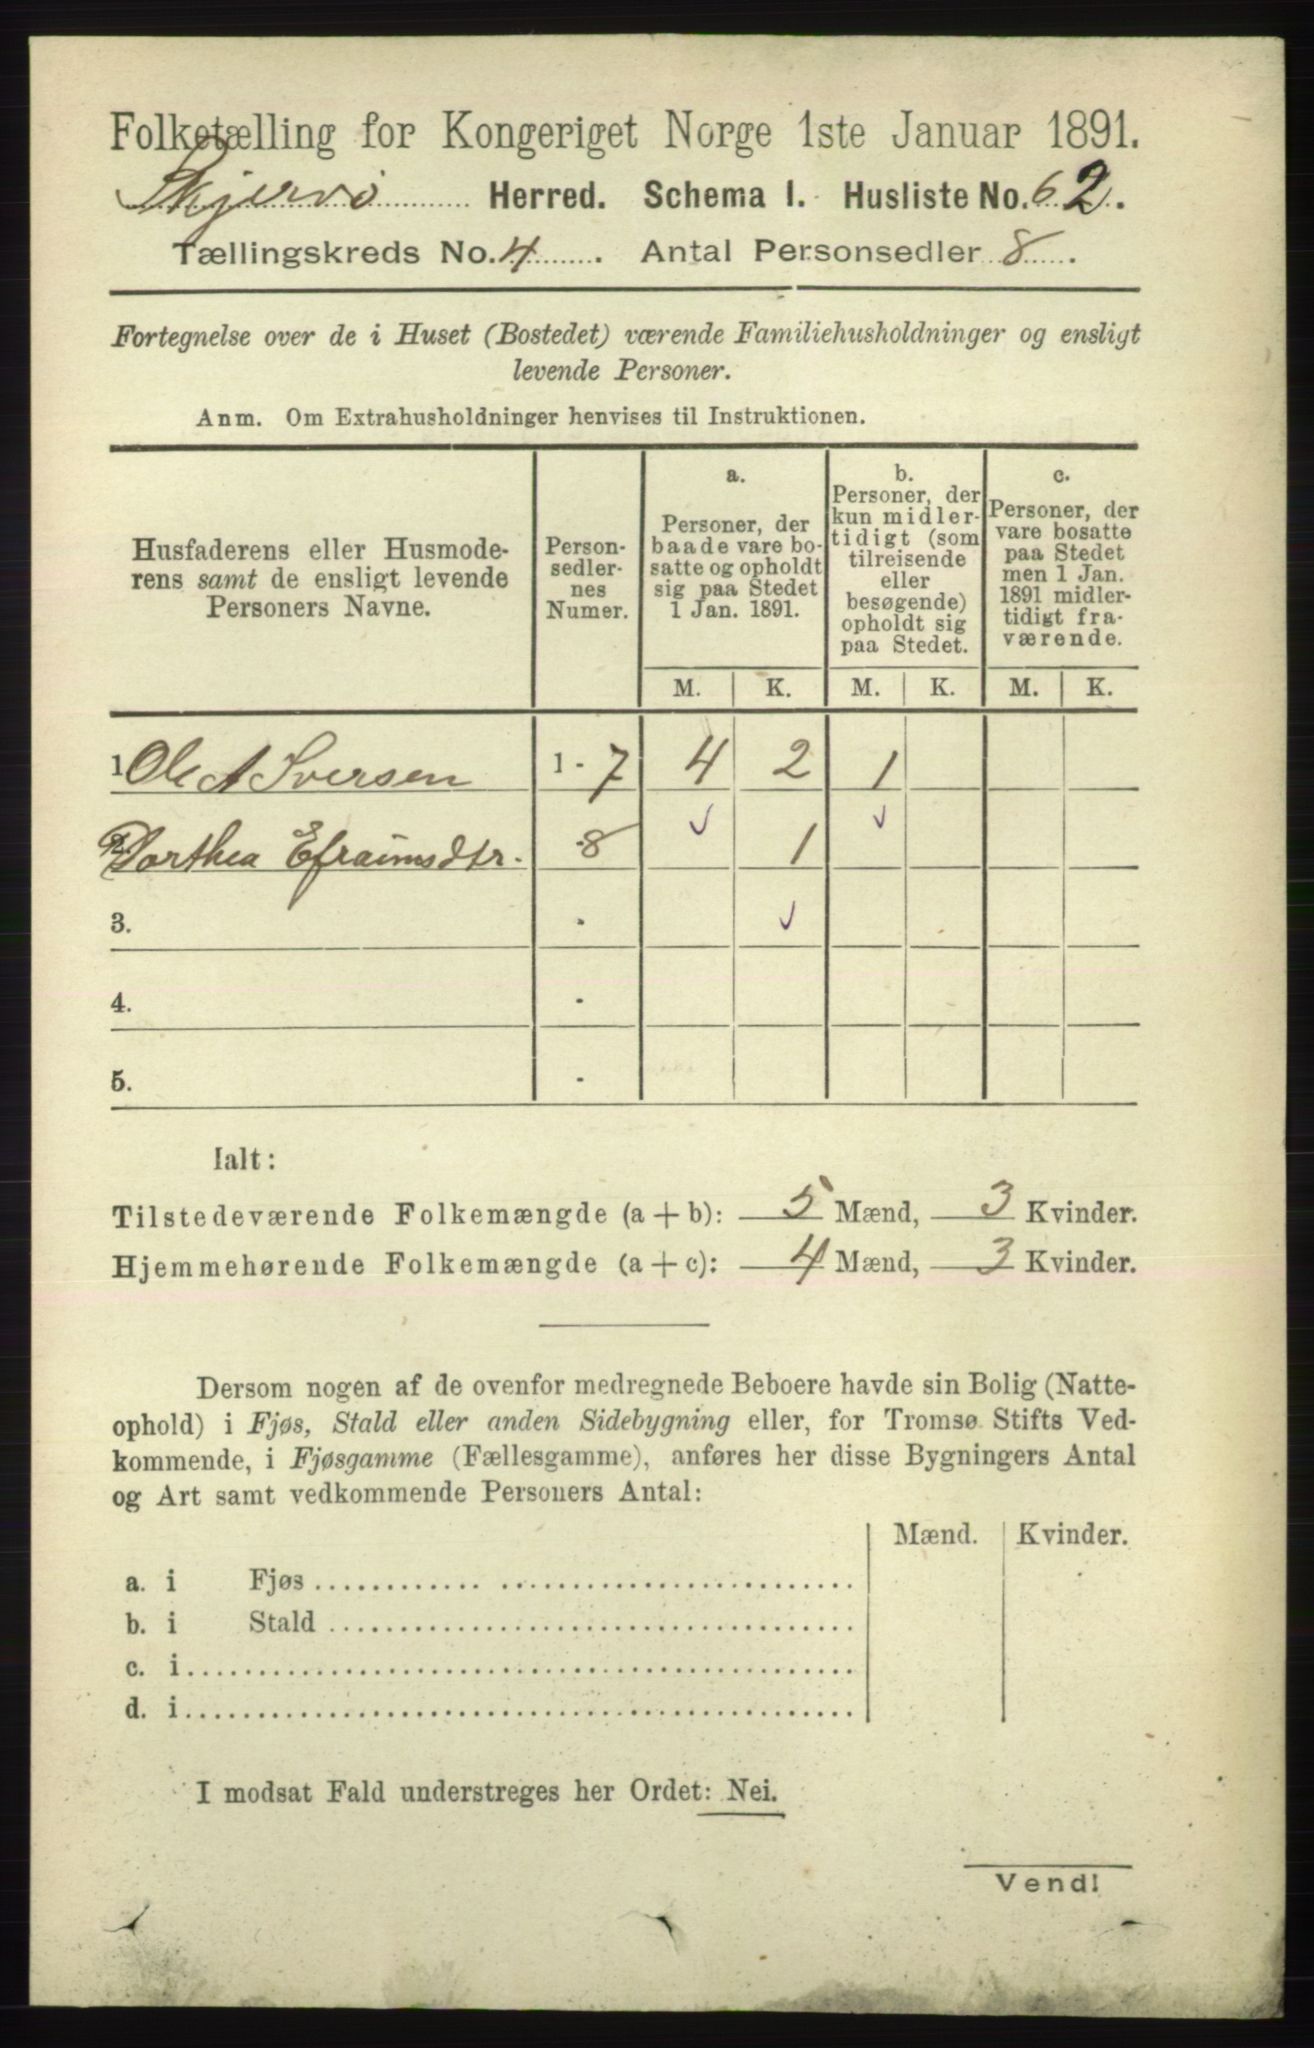 Folketælling for Kongeriget Norge 1ste Januar 1891.
Skjervø Herred. Schema I. Husliste No. 62.
Tællingskreds No. 4. Antal Personsedler 8.
Fortegnelse over de i Huset (Bostedet) værende Familiehusholdninger og ensligt
levende Personer.
Anm. Om Extrahusholdninger henvises til Instruktionen.
Husfaderens eller Husmode-
rens samt de ensligt levende
Personers Navne.
Person-
sedler-
nes
Numer.
a.
Personer, der
baade vare bo-
satte og opholdt
sig paa Stedet
1 Jan. 1891.
b.
Personer, der
kun midler-
tidigt (som
tilreisende
eller
besøgende)
opholdt sig
paa Stedet.
c.
Personer, der
vare bosatte
paa Stedet
men 1 Jan.
1891 midler-
tidigt fra-
værende.
M. K. M. K. M. K.
1. Ole A Iversen 1 - 7 4 2 1
2. Dorthea Efraimsdtr. 8 1
3.
4.
5.
Ialt:
Tilstedeværende Folkemængde (a + b): 5 Mænd, 3 Kvinder.
Hjemmehørende Folkemængde (a + c): 4 Mænd, 3 Kvinder.
Dersom nogen af de ovenfor medregnede Beboere havde sin Bolig (Natte-
ophold) i Fjøs, Stald eller anden Sidebygning eller, for Tromsø Stifts Ved-
kommende, i Fjøsgamme (Fællesgamme), anføres her disse Bygningers Antal
og Art samt vedkommende Personers Antal:
Mænd. Kvinder.
a. i Fjøs
b. i Stald
c. i
d. i
I modsat Fald understreges her Ordet: Nei.
Vend!